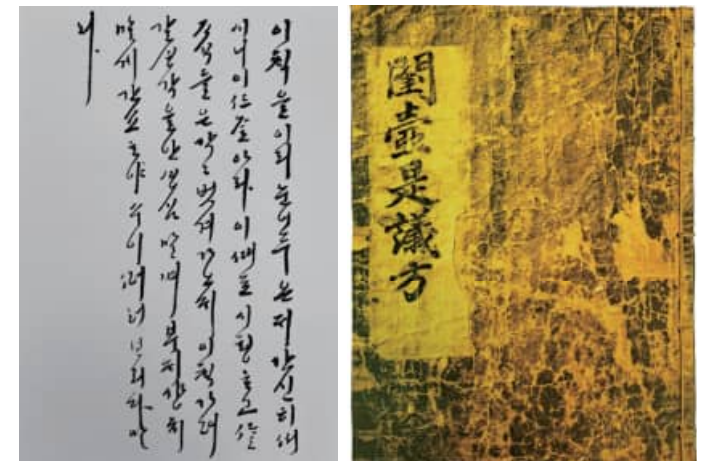 이 ᄎᆡᆨ을 이리 눈 어두온 간신히
시니 이 ᄠᅳᆺ 아라 이 ᄯᅢ로 시ᄒᆡᆼᄒᆞ고 ᄯᆞᆯ
ᄌᆞ식들은 각각 벗겨 이 ᄎᆡᆨ 가
갈 ᄉᆡᆼ각을안 ᄉᆡᆼ심 말며 부ᄃᆡ
말게 간쇼ᄒᆞ야 수이 ᄠᅥ러 말
라
閨壼是議方